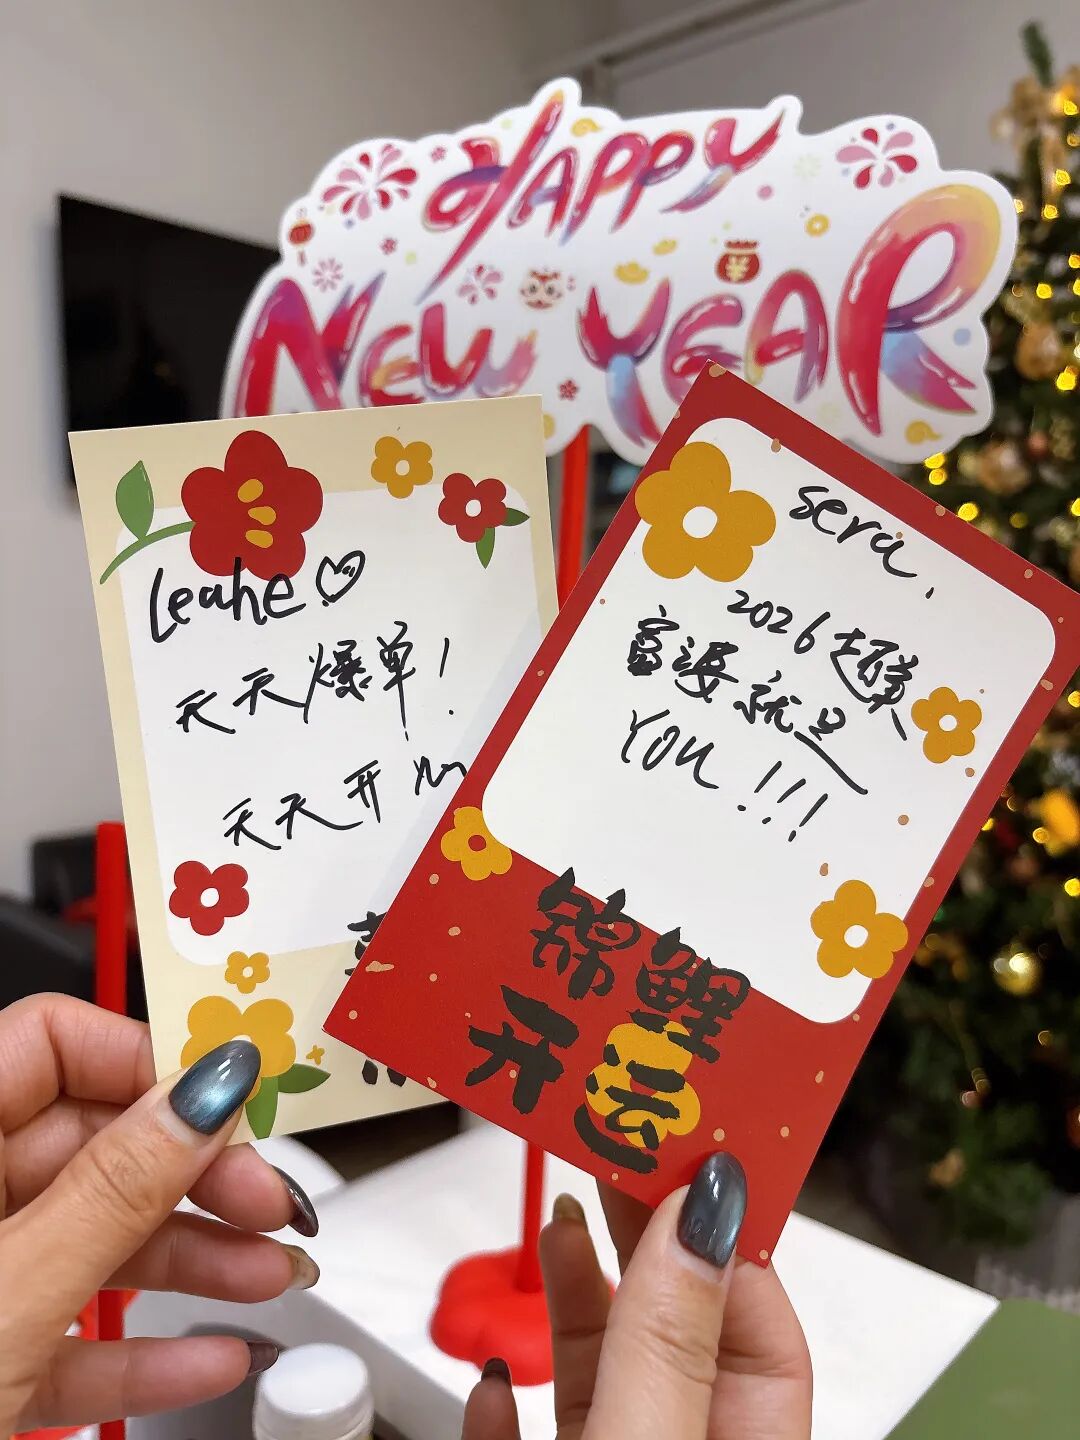 HAPPY
NEW YEAR
Leahe
天天爆单!
天天开心
sera,
2026超美
富婆就是
YOU!!!
锦鲤
开运